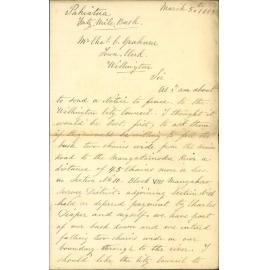 Pahiatua
Forty Mile Bush
March 5th 188
Mr Chas C. Graham
Town Clerk
Wellington
Sir
As I am about
to send a Notice to fence to the
Wellington City Council. I thought it
would be best first, to ask them
if they would be willing to fell the
bush two chains wide from the main
road to the Mangatainoka River a
distance of 45 chains more or less
in Section No 10. Block VIII Mangahao
Survey District. adjoining Section
held on deferred payment by Charles
Draper and myself, we have part
of our bush down and we intend
falling two chains wide on our
boundary through to the river. I
should like the City Council to